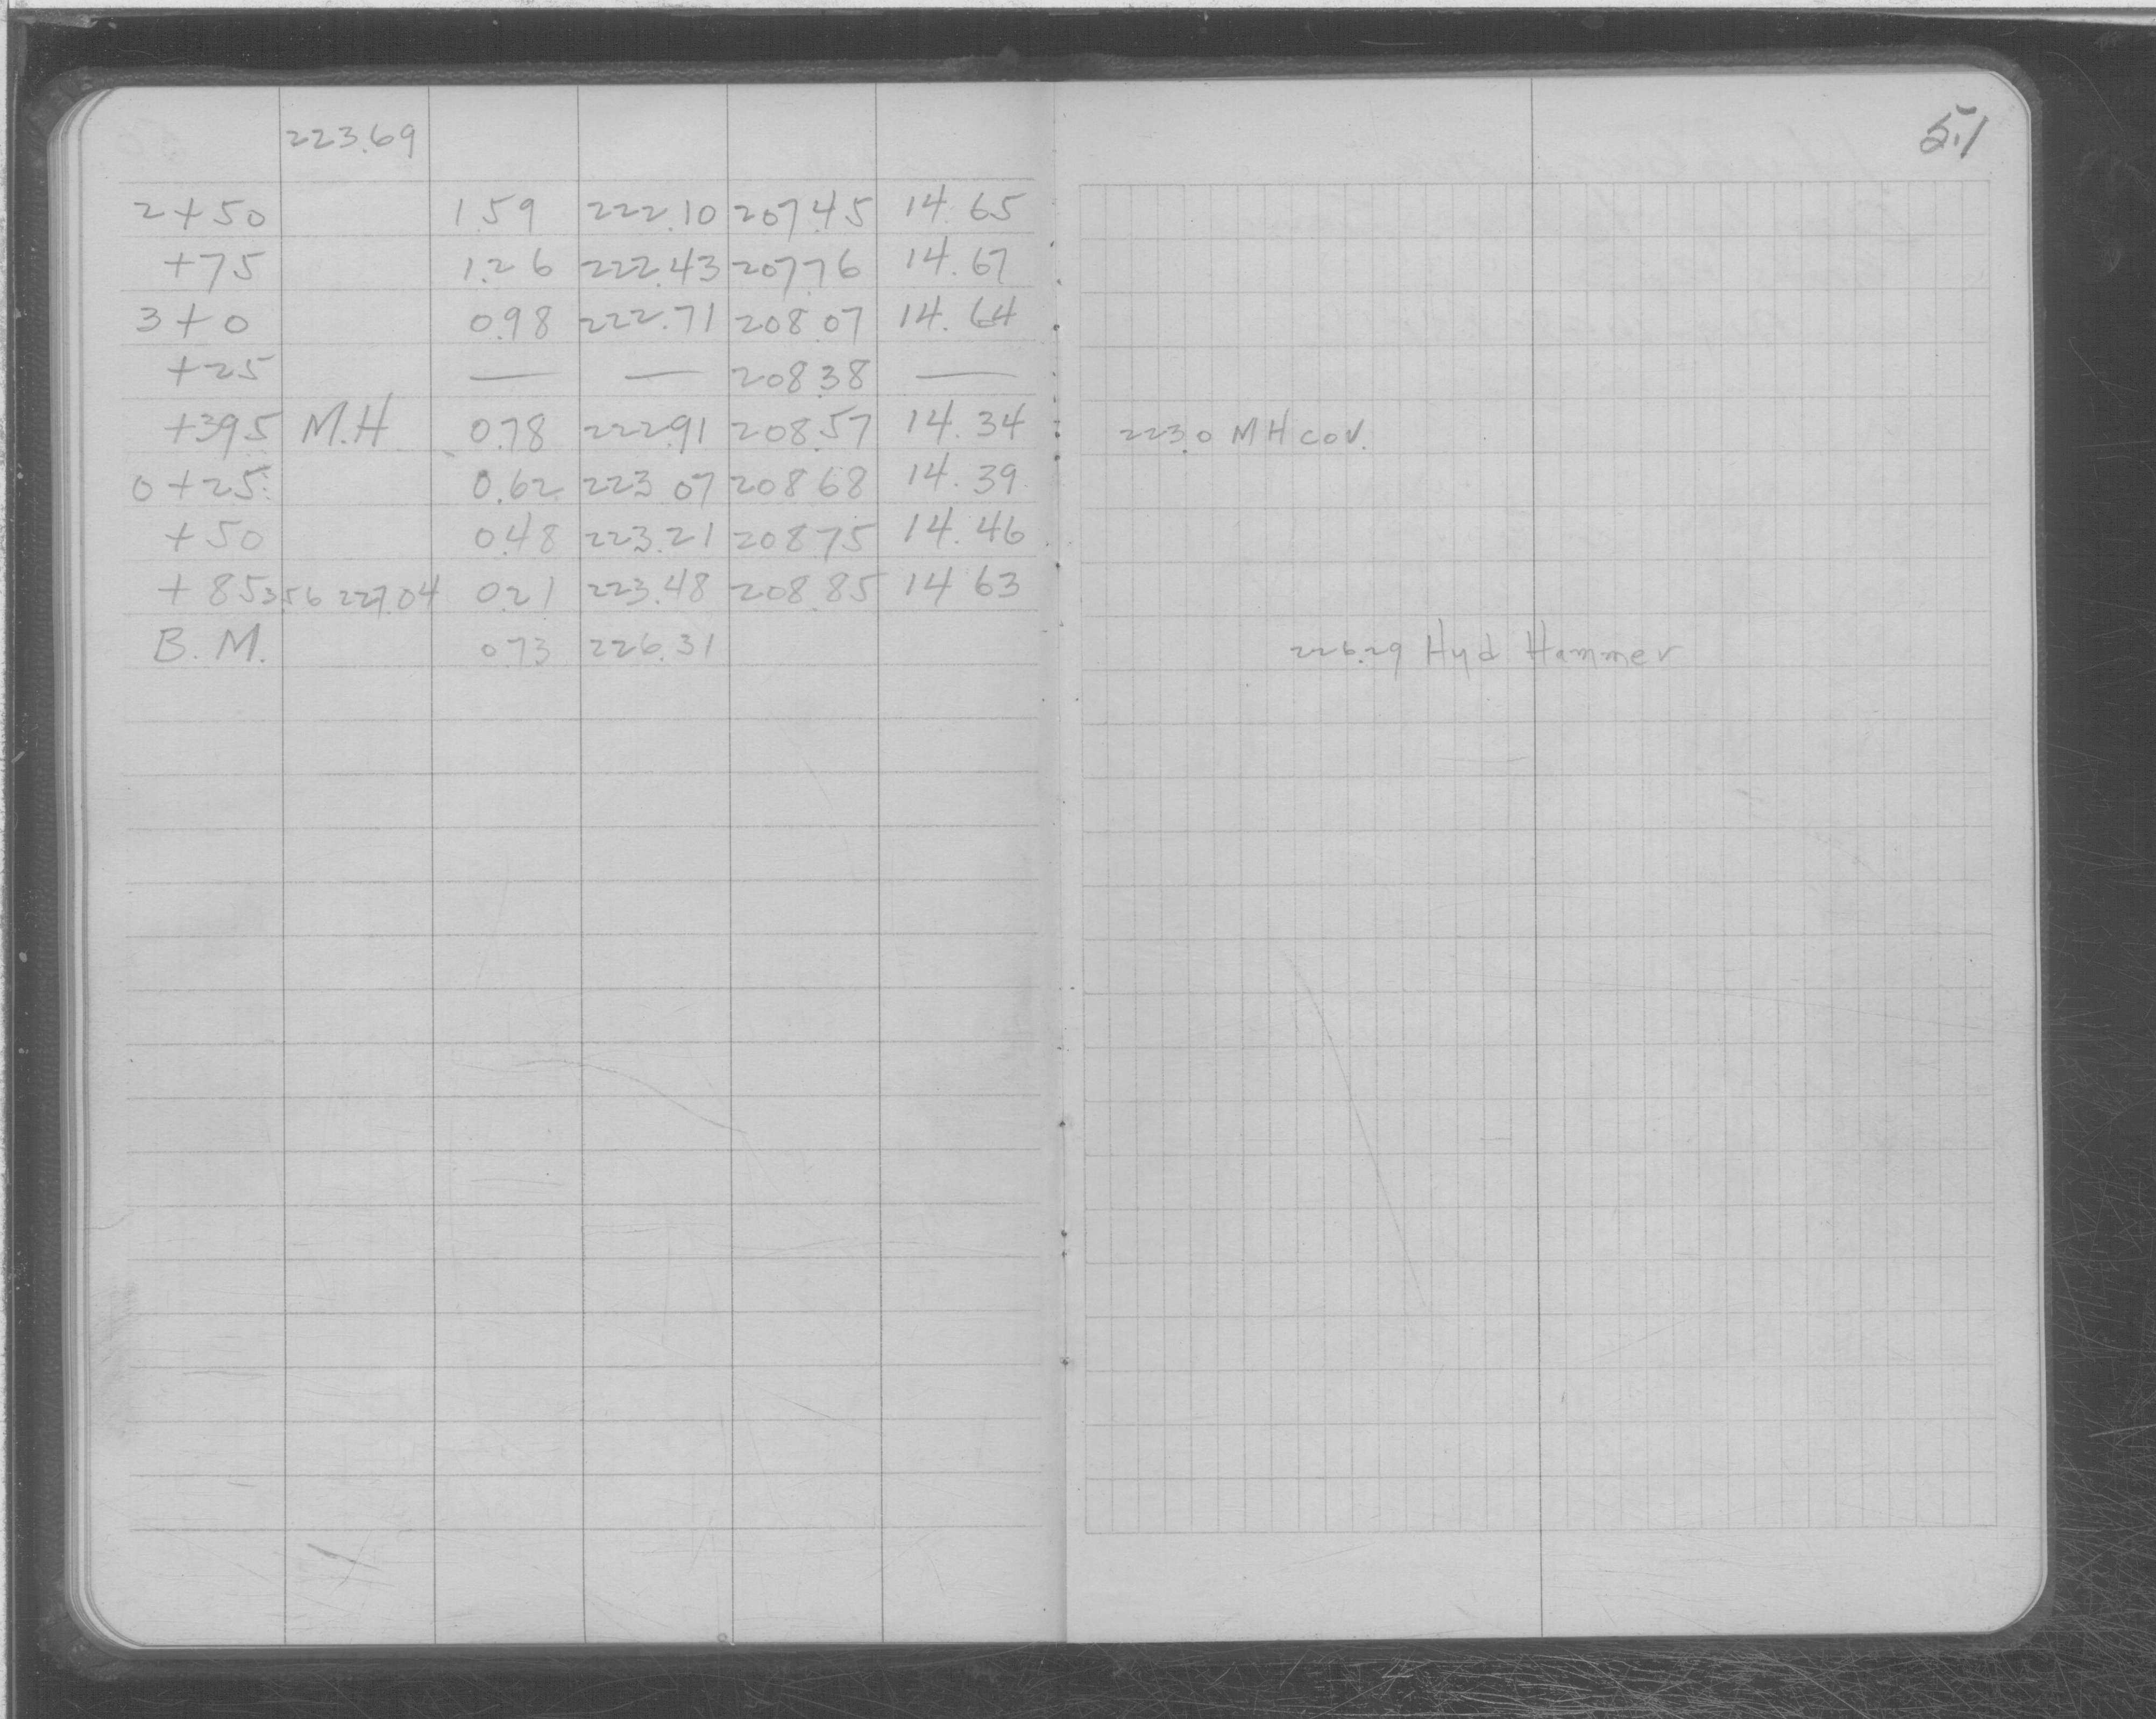 51
223.69
2+50 1.59 222.10 207.45 14.65
+75 1.26 222.43 207.76 14.67
3+0 0.98 222.71 208.07 14.64
+25 — — 208.38 —
+39.5 M.H 0.78 222.91 208.57 14.34 223.0 MH cov.
0+25 0.62 223.07 208.68 14.39
+50 0.48 223.21 208.75 14.46
+85 3.56 227.04 0.21 223.48 208.85 14.63
B.M. 0.73 226.31 226.29 Hyd Hammer